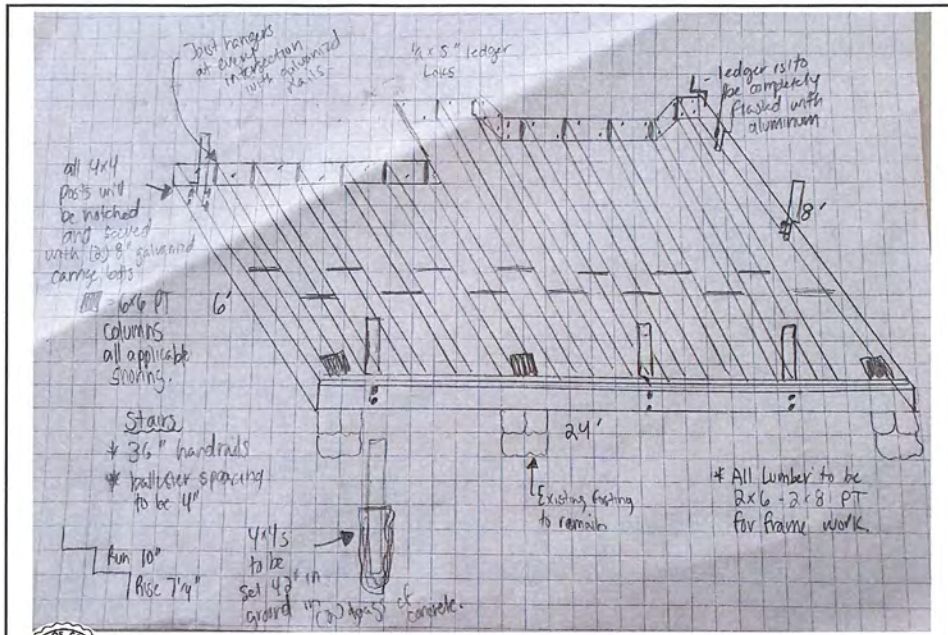 Joist hangers
at every
intersection
with galvanized
nails.
5" ledger
ledger is to
be completely
flashed with
aluminum
all 4x4
posts will
be notched
and
with (2) 8" galvanized
bolts
= 6x6 PT
columns
all applicable
6'
8'
24'
Stairs
* 36" handrails
* spacing
to be 4"
Run 10"
Rise 7 1/4"
4x4s
to be
set 42" in
ground in (2) of
concrete.
Existing footing
to remain
* All Lumber to be
2x6 - 2x8 PT
for frame work.